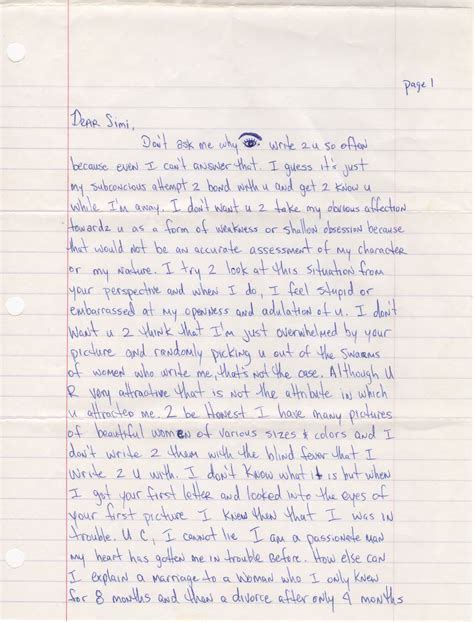 page 1
Dear Simi,
Don't ask me why 👁 write 2 u so often
because even I can't answer that. I guess it's just
my subconcious attempt 2 bond with u and get 2 know u
while I'm away. I don't want u 2 take my obvious affection
towardz u as a form of weakness or shallow obsession because
that would not be an accurate assessment of my character
or my nature. I try 2 look at this situation from
your perspective and when I do, I feel stupid or
embarrassed at my openness and adulation of u. I don't
want u 2 think that I'm just overwhelmed by your
picture and randomly picking u out of the swarms
of women who write me, that's not the case. Although U
R very attractive that is not the attribute in which
u attracted me. 2 be Honest I have many pictures
of beautiful women of various sizes & colors and I
don't write 2 them with the blind fever that I
write 2 u with. I don't know what it is but when
I got your first letter and looked into the eyes of
your first picture I knew then that I was in
trouble. U C, I cannot lie I am a passionate man
my heart has gotten me in trouble before. How else can
I explain a marriage to a woman who I only knew
for 8 months and then a divorce after only 4 months